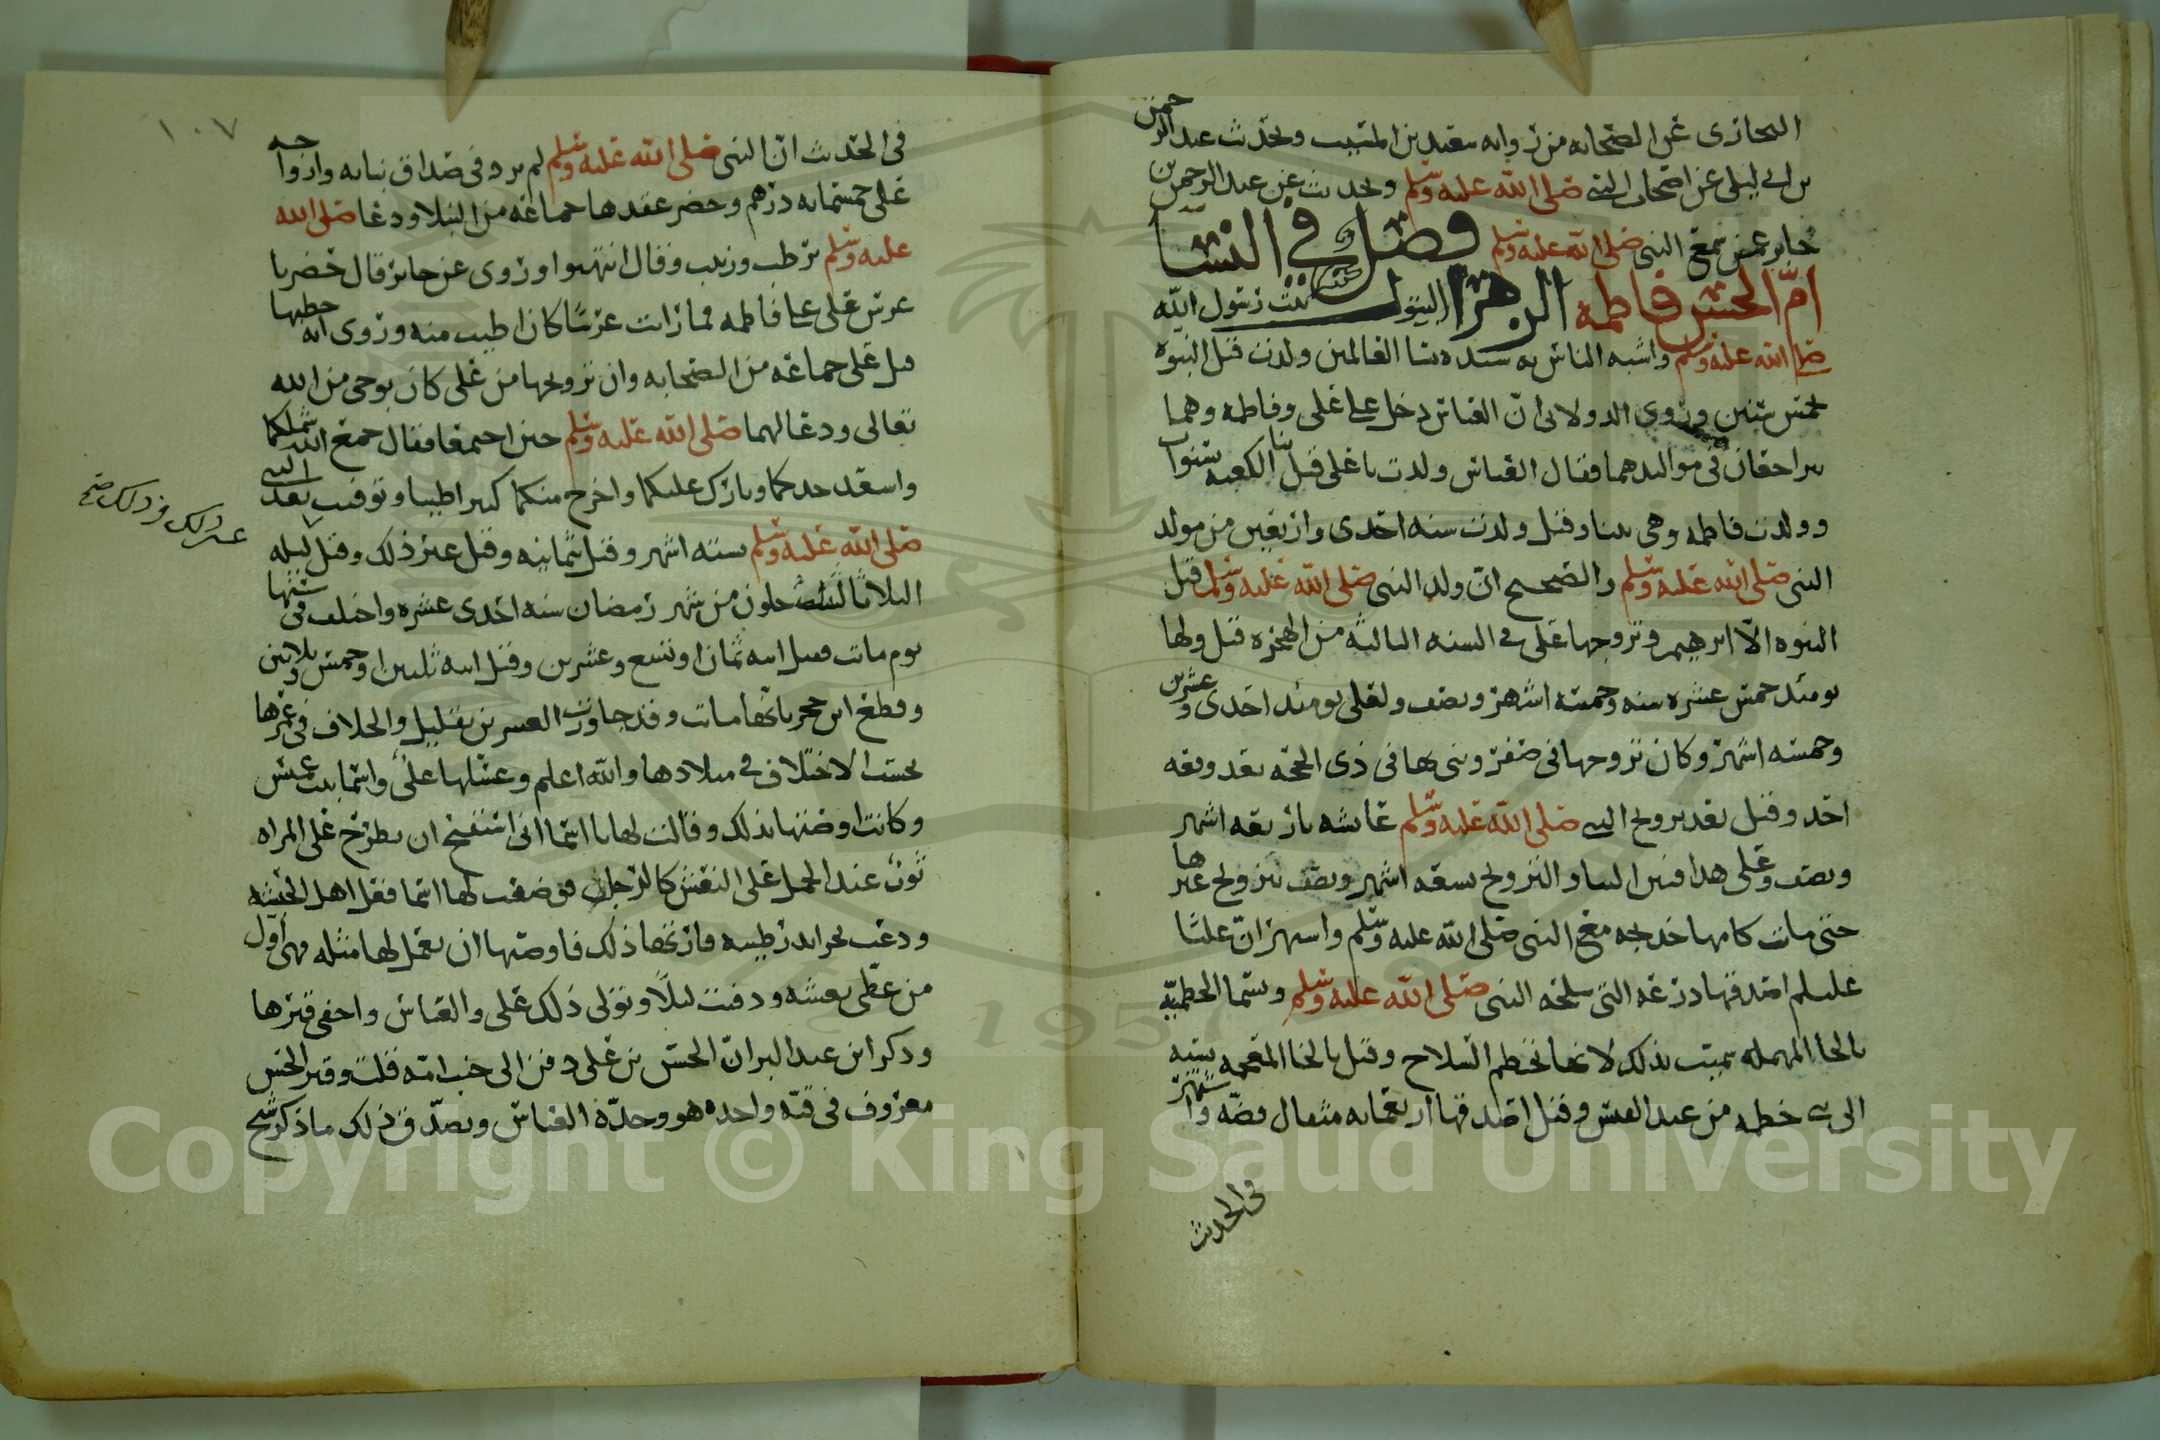 البخاري عن الصحابه من رواية سعيد بن المسيب وبحديث عبد الرحمن
بن ابي ليلى عن اصحاب النبي صلى الله عليه وسلم وبحديث عن عبد الرحمن بن
جابر عمن سمع النبي صلى الله عليه وسلم فصل في النسا
امّ الحسن فاطمه الزهرا البتول بنت رسول الله
صلى الله عليه وسلم واشبه الناس به سيده نسا العالمين ولدت قبل النبوه
بخمس سنين وروى الدولابي انّ العباس دخل على علي وفاطمه وهما
يتراجعان في مواليدهما فقال العباس ولدت يا علي قبل بنا الكعبه بسنوات
وولدت فاطمه وهي تبنا وقيل ولدت سنه احدى واربعين من مولد
النبي صلى الله عليه وسلم والصحيح انّ ولد النبي صلى الله عليه وسلم قبل
النبوه الّا ابرهيم وتزوجها علي في السنه الثالثه من الهجره قيل ولها
يومئذ خمس عشره سنه وخمسه اشهر ونصف ولعلي يومئذ احدى وعشرين
وخمسه اشهر وكان تزوجها في صفر وبنى بها في ذي الحجه بعد وقعه
احد وقيل بعد تزويج النبي صلى الله عليه وسلم عايشه باربعه اشهر
ونصف وعلى هذا فبين البنا والتزويج سبعه اشهر ونصف ولم يتزوج غيرها
حتى ماتت كامها خديجه مع النبي صلى الله عليه وسلم واشتهر انّ عليّا
عليلم اصدقها درعه التي سلحه النبي صلى الله عليه وسلم وتسما الحطميّه
بالحا المهمله سميت بذلك لانها تحطم السلاح وقيل بالخا المعجمه نسبه
الى بني خطمه من عبد القيس وقيل اصدقها اربعمايه مثقال فضّه واشتهر
في الحديث
١٠٧
في الحديث انّ النبي صلى الله عليه وسلم لم يزد في صداق بناته وازواجه
على خمسمايه درهم وحضر عقدها جماعه من النبلا ودعا صلى الله
عليه وسلم برطب وزبيب وقال انتهبوا وروى عن جابر قال حضرنا
عرس علي على فاطمه فما رايت عرسًا كان اطيب منه وروى انه خطبها
قبل علي جماعه من الصحابه وان تزويجها من علي كان بوحي من الله
تعالى ودعا لهما صلى الله عليه وسلم حين اجتمعا فقال جمع الله شملكما
واسعد جدكما وبارك عليكما واخرج منكما كثيرا طيبا وتوفيت بعد النبي
صلى الله عليه وسلم بسته اشهر وقيل ثمانيه وقيل غير ذلك وقيل ليله
غير ذلك وذلك صح
الثلاثا لثلث خلون من شهر رمضان سنه احدى عشره واختلف في سنها
يوم ماتت فقيل ابنه ثمان او تسع وعشرين وقيل ابنه ثلثين او خمس وثلاثين
وقطع ابن حجر بانها ماتت وقد جاوزت العشرين بقليل والخلاف في عمرها
بحسب الاختلاف في ميلادها والله اعلم وغسلها علي واسما بنت عميس
وكانت اوصتها بذلك وقالت لها يا اسما اني استقبح ان يطرح على المراه
ثوب عند الحمل على النعش كالرجل فوصفت لها اسما فعل اهل الحبشه
ودعت بجرايد رطبه فارتها ذلك فاوصتها ان تعمل لها مثله فهي اول
من غطي نعشه ودفنت ليلًا وتولى ذلك علي والعباس واخفي قبرها
وذكر ابن عبد البر انّ الحسن بن علي دفن الى جنب امه قلت وقبر الحسن
معروف في قبّه واحده هو وجدّه العباس ويصدّق ذلك ما ذكر شيخ
Copyright © King Saud University
1957